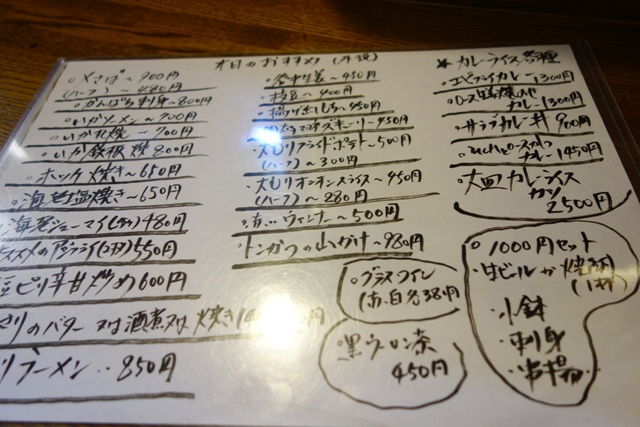 本日のおすすめ
〆さば〜900円
(ハーフ)〜480円
かんぱち刺身〜800円
いかソーメン〜700円
いか丸焼〜700円
いか鉄板焼800円
ホッケ焼き〜650円
海老塩焼き〜650円
海老シューマイ 480円
ススメのアジフライ 550円
ピリ辛甘炒め600円
さりのバター 又は酒煮又は焼き
ラーメン‥850円
〜450円
枝豆〜400円
揚げ出しもち〜450円
〜450円
大もりフライドポテト〜500円
(ハーフ)〜300円
大もりオニオンスライス〜450円
(ハーフ)〜280円
赤いウィンナー〜500円
トンカツの山かけ〜980円
グラスワイン
(赤、白各381円
黒ウーロン茶
450円
★カレーライス各種
エビフライカレー1300円
ロース生姜焼のせ
カレー1300円
サラダカレー丼900円
ロースカツ
カレー1450円
大皿カレーライス
カツ
2500円
1000円セット
・生ビールか焼酎
(1杯)
・小鉢
・刺身
・串揚